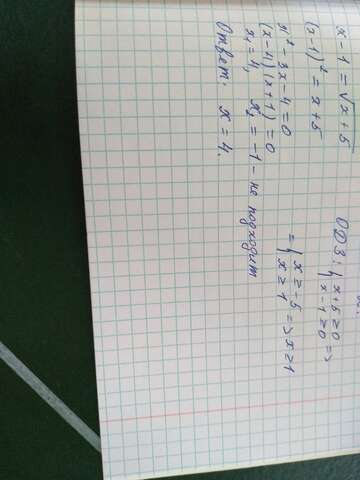 x - 1 = √x + 5
(x - 1)² = x + 5
x² - 3x - 4 = 0
(x - 4)(x + 1) = 0
x₁ = 4, x₂ = -1 - не подходит
Ответ: x = 4.
ОДЗ: { x + 5 ≥ 0
x - 1 ≥ 0 =>
= { x ≥ -5
x ≥ 1 => x ≥ 1